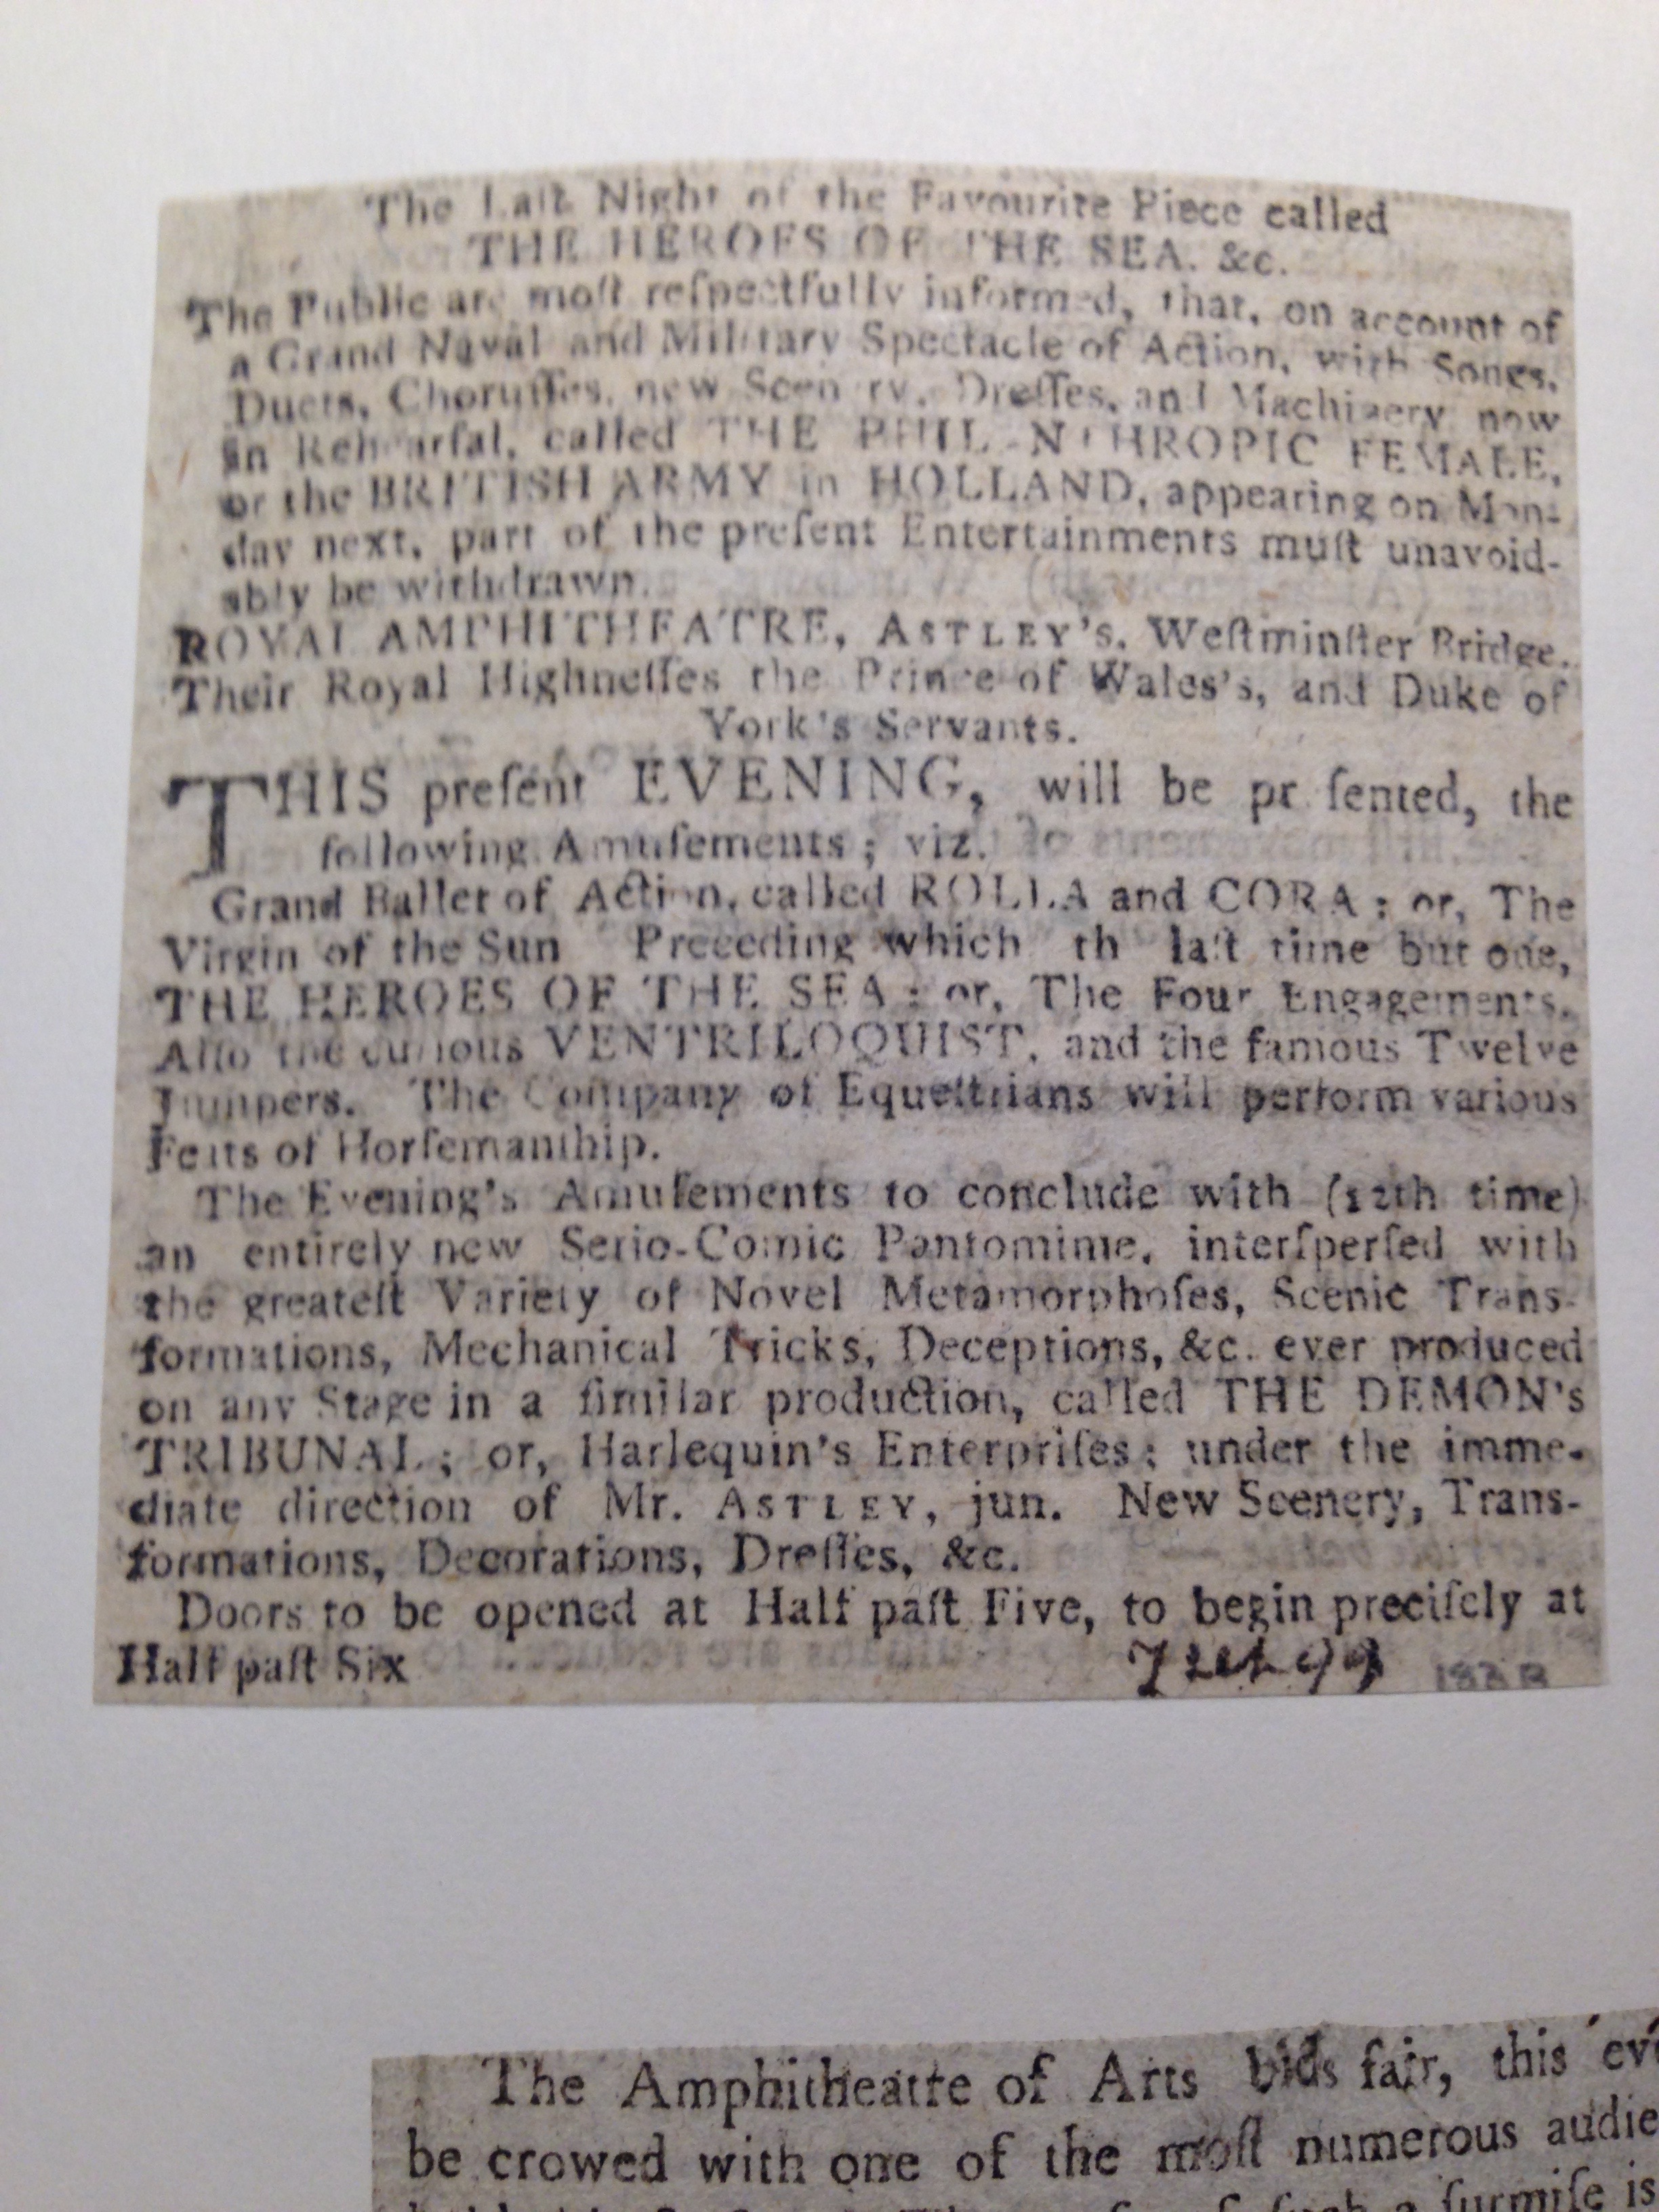 The Laſt Night of the Favourite Piece called
THE HEROES OF THE SEA. &c.
The Public are moſt reſpectfully informed, that, on account of
a Grand Naval and Military Spectacle of Action, with Songs,
Duets, Choruſſes, new Scenery, Dreſſes, and Machinery now
in Rehearſal, called THE PHILANTHROPIC FEMALE,
or the BRITISH ARMY in HOLLAND, appearing on Mon-
day next, part of the preſent Entertainments muſt unavoid-
ably be withdrawn.
ROYAL AMPHITHEATRE, ASTLEY's, Weſtminſter Bridge.
Their Royal Highneſſes the Prince of Wales's, and Duke of
York's Servants.
THIS preſent EVENING, will be pr ſented, the
following Amuſements; viz.
Grand Ballet of Action, called ROLLA and CORA; or, The
Virgin of the Sun Preceding which th laſt time but one,
THE HEROES OF THE SEA; or, The Four Engagements.
Alſo the curious VENTRILOQUIST, and the famous Twelve
Jumpers. The Company of Equeſtrians will perform various
Feats of Horſemanſhip.
The Evening's Amuſements to conclude with (12th time)
an entirely new Serio-Comic Pantomime, interſperſed with
the greateſt Variety of Novel Metamorphoſes, Scenic Trans-
formations, Mechanical Tricks, Deceptions, &c. ever produced
on any Stage in a ſimilar production, called THE DEMON's
TRIBUNAL; or, Harlequin's Enterpriſes; under the imme-
diate direction of Mr. ASTLEY, jun. New Scenery, Trans-
formations, Decorations, Dreſſes, &c.
Doors to be opened at Half paſt Five, to begin preciſely at
Half paſt Six
The Amphitheatre of Arts bids fair, this eve
be crowed with one of the moſt numerous audie
ſuch a ſurmiſe is